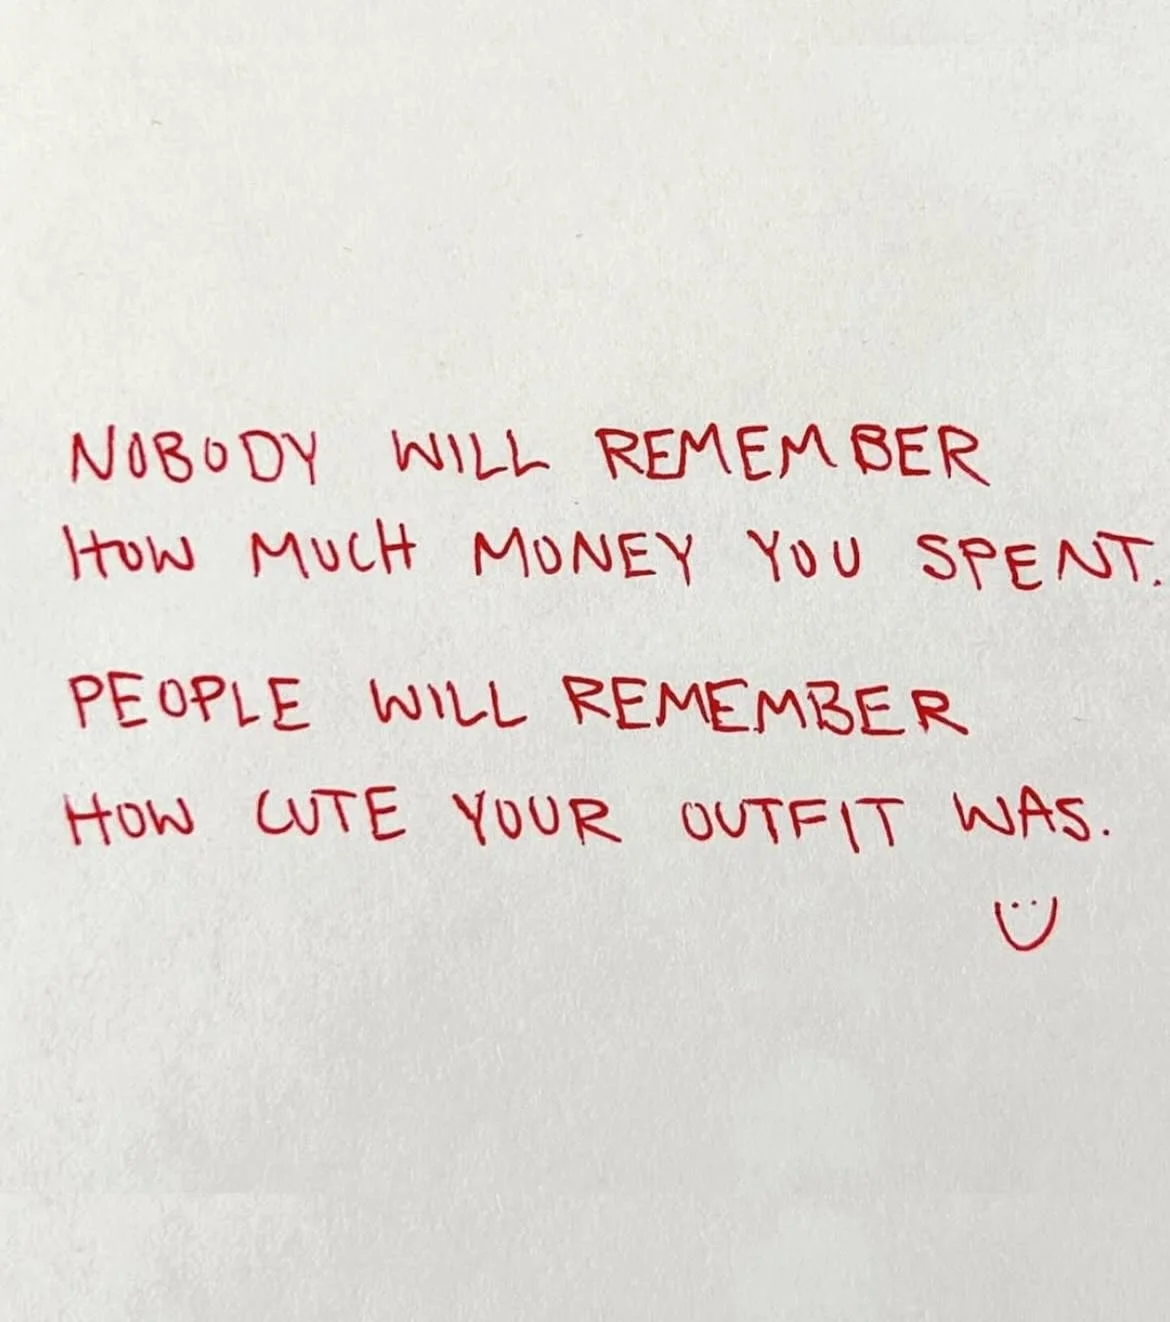 NOBODY WILL REMEMBER
HOW MUCH MONEY YOU SPENT.
PEOPLE WILL REMEMBER
HOW CUTE YOUR OUTFIT WAS.